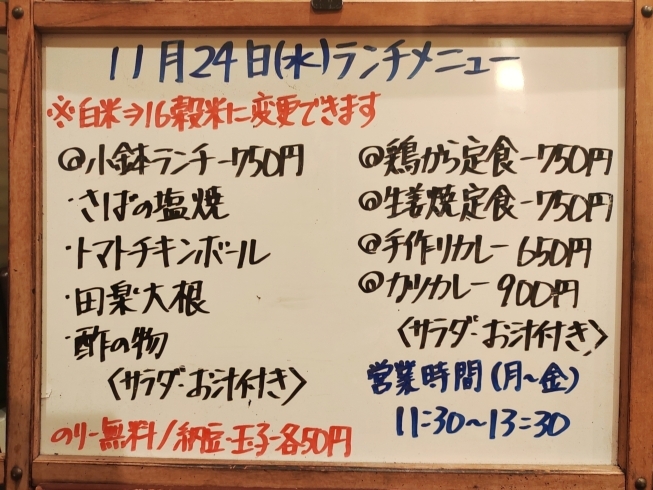 11月24日(水)ランチメニュー
※白米⇒16穀米に変更できます
@小鉢ランチー750円
・さばの塩焼
・トマトチキンボール
・田楽大根
・酢の物
〈サラダ・お汁付き〉
のりー無料/納豆・玉子-各50円
@鶏から定食ー750円
@生姜焼定食ー750円
@手作りカレー 650円
@カツカレー 900円
〈サラダ・お汁付き〉
営業時間(月~金)
11:30~13:30